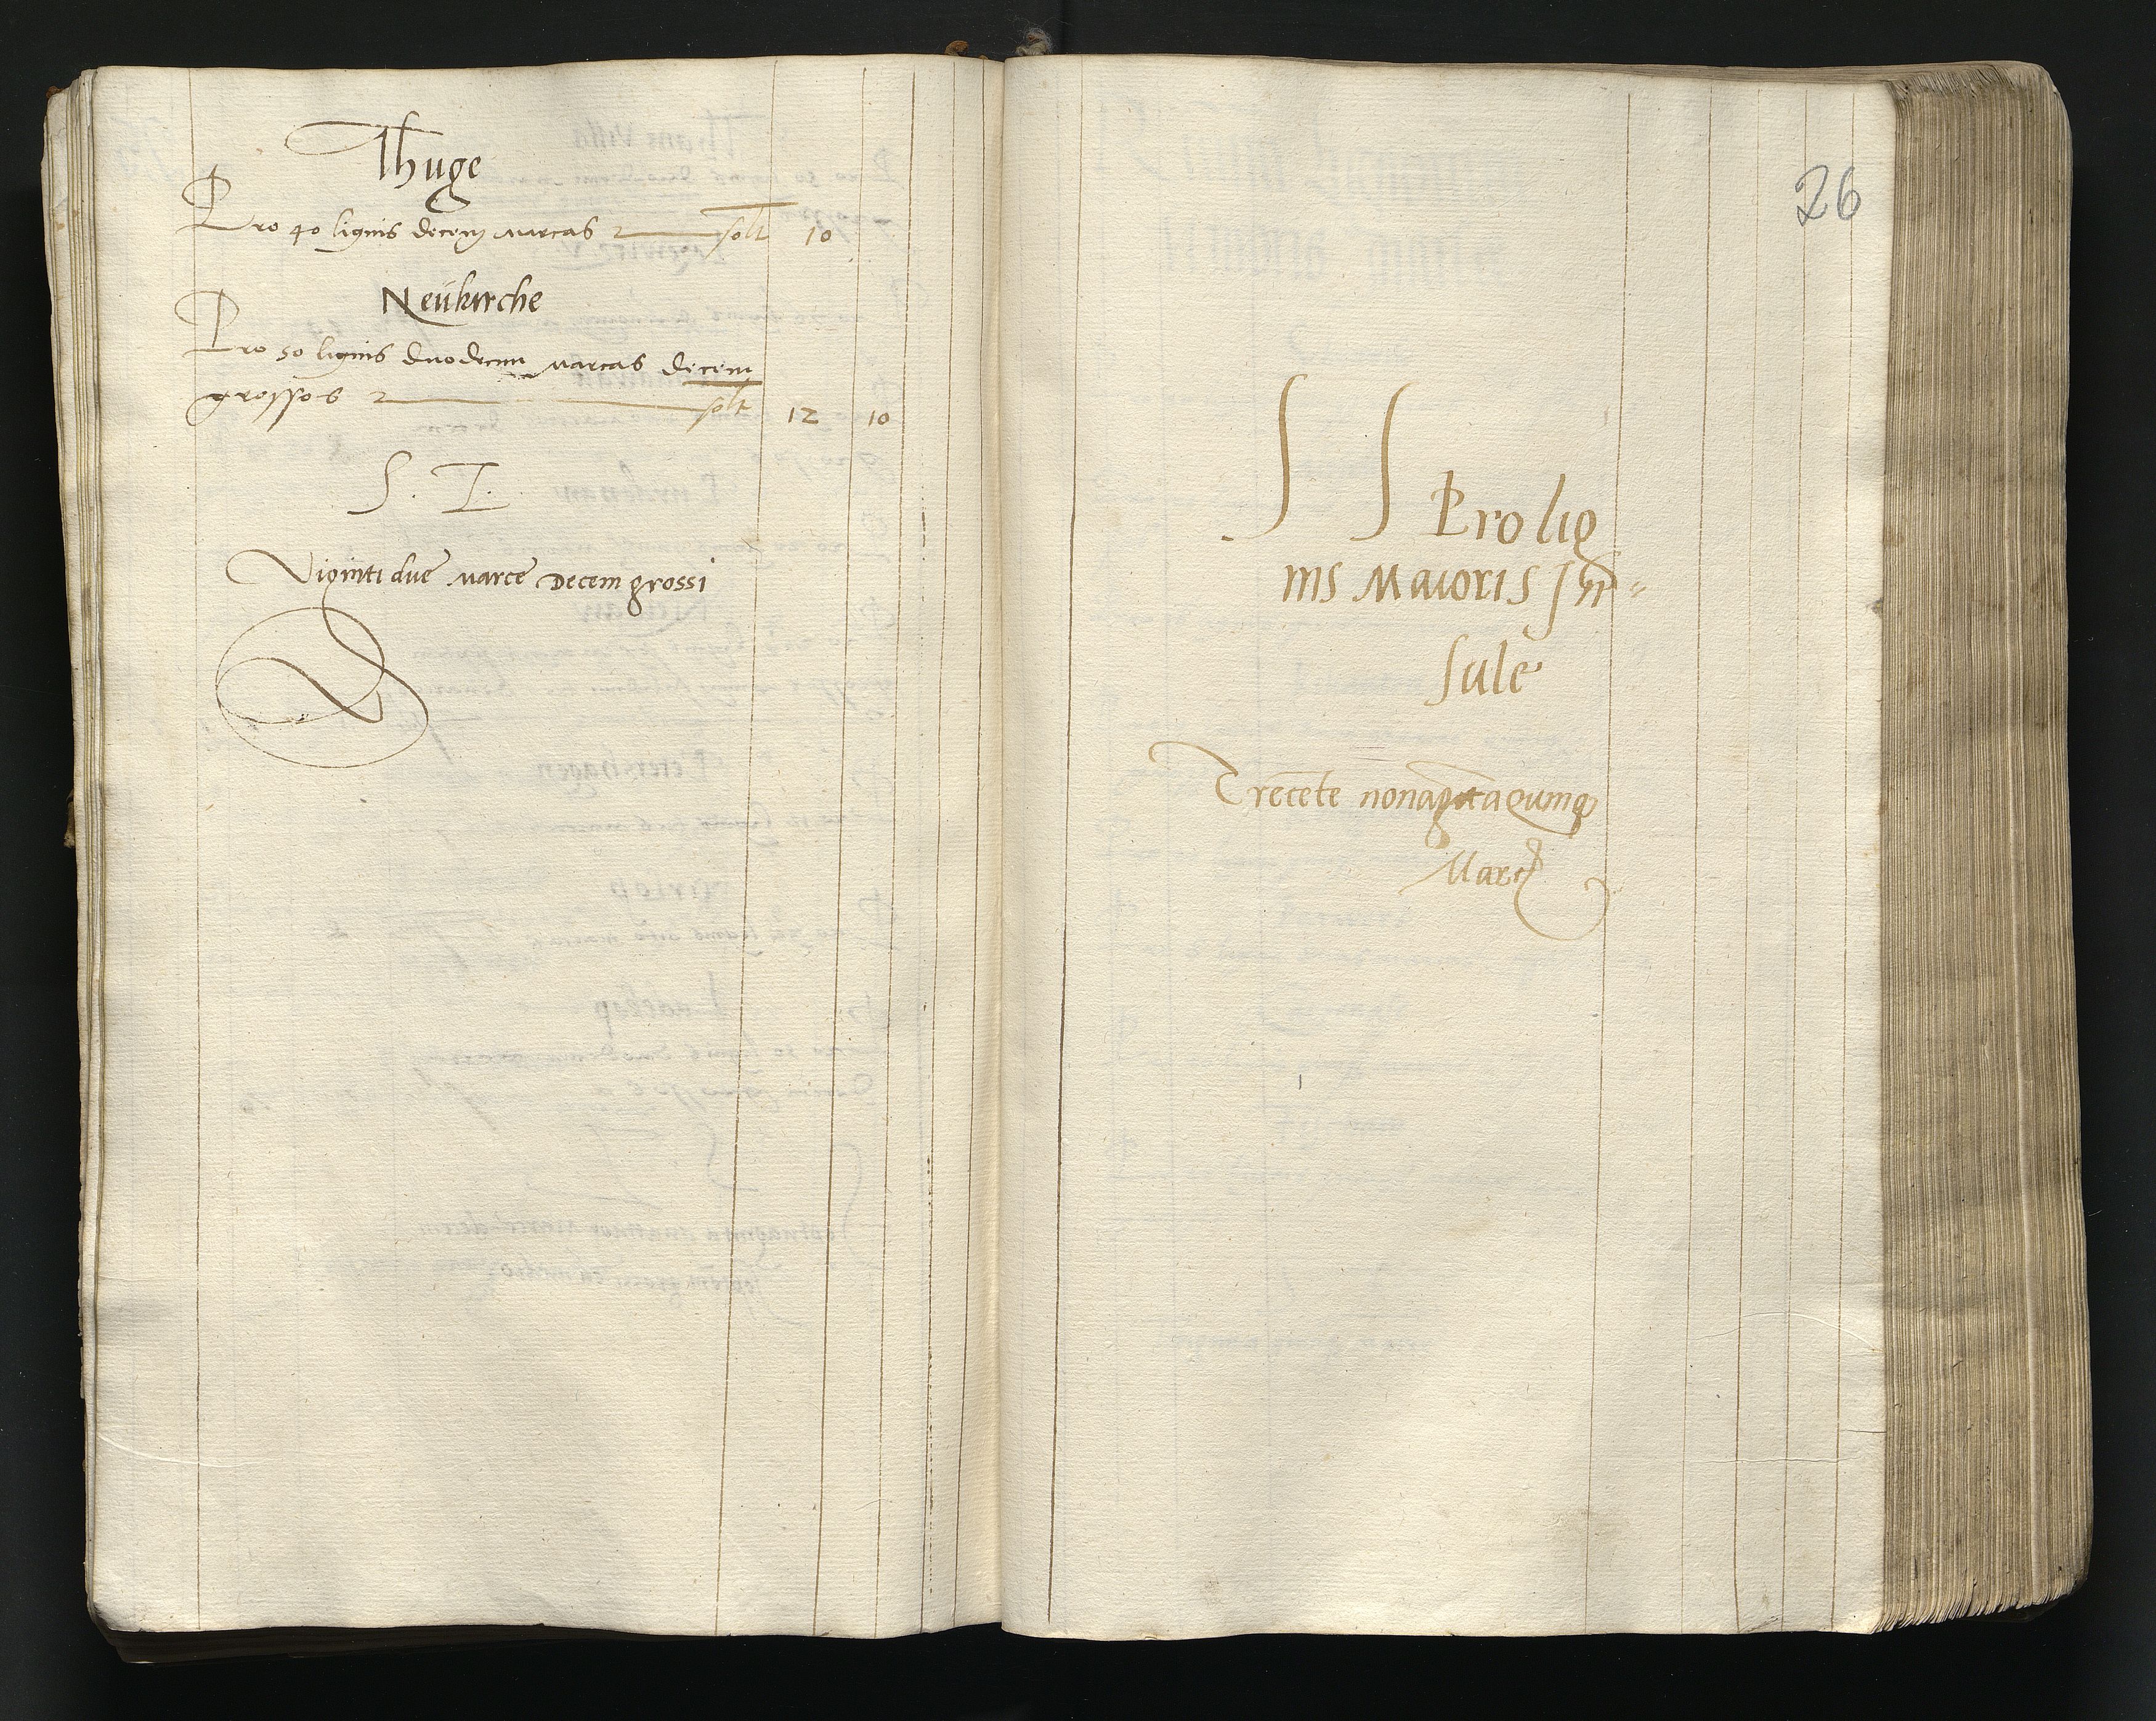 Thuge
Pro 40 lignis decem marcas solt 10
Neükirche
Pro 50 lignis duodecim marcas decem
grossos solt 12 10
S. T.
Viginti due marce Decem grossi
26
S S Pro lig
nis Maioris Jn=
sule
Trecēte nonagīta
Marc